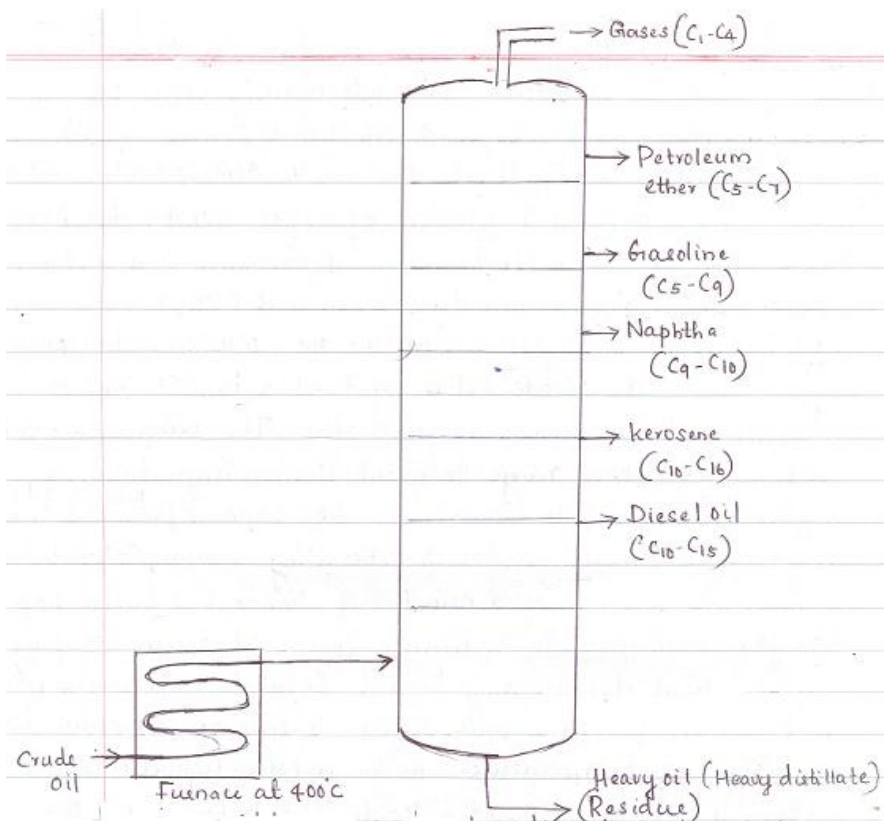 → Gases (C₁-C₄)
Petroleum
ether (C₅-C₇)
Gasoline
(C₅-C₉)
Naphtha
(C₉-C₁₀)
kerosene
(C₁₀-C₁₆)
Diesel oil
(C₁₀-C₁₅)
Crude
oil
Furnace at 400°C
Heavy oil (Heavy distillate)
(Residue)